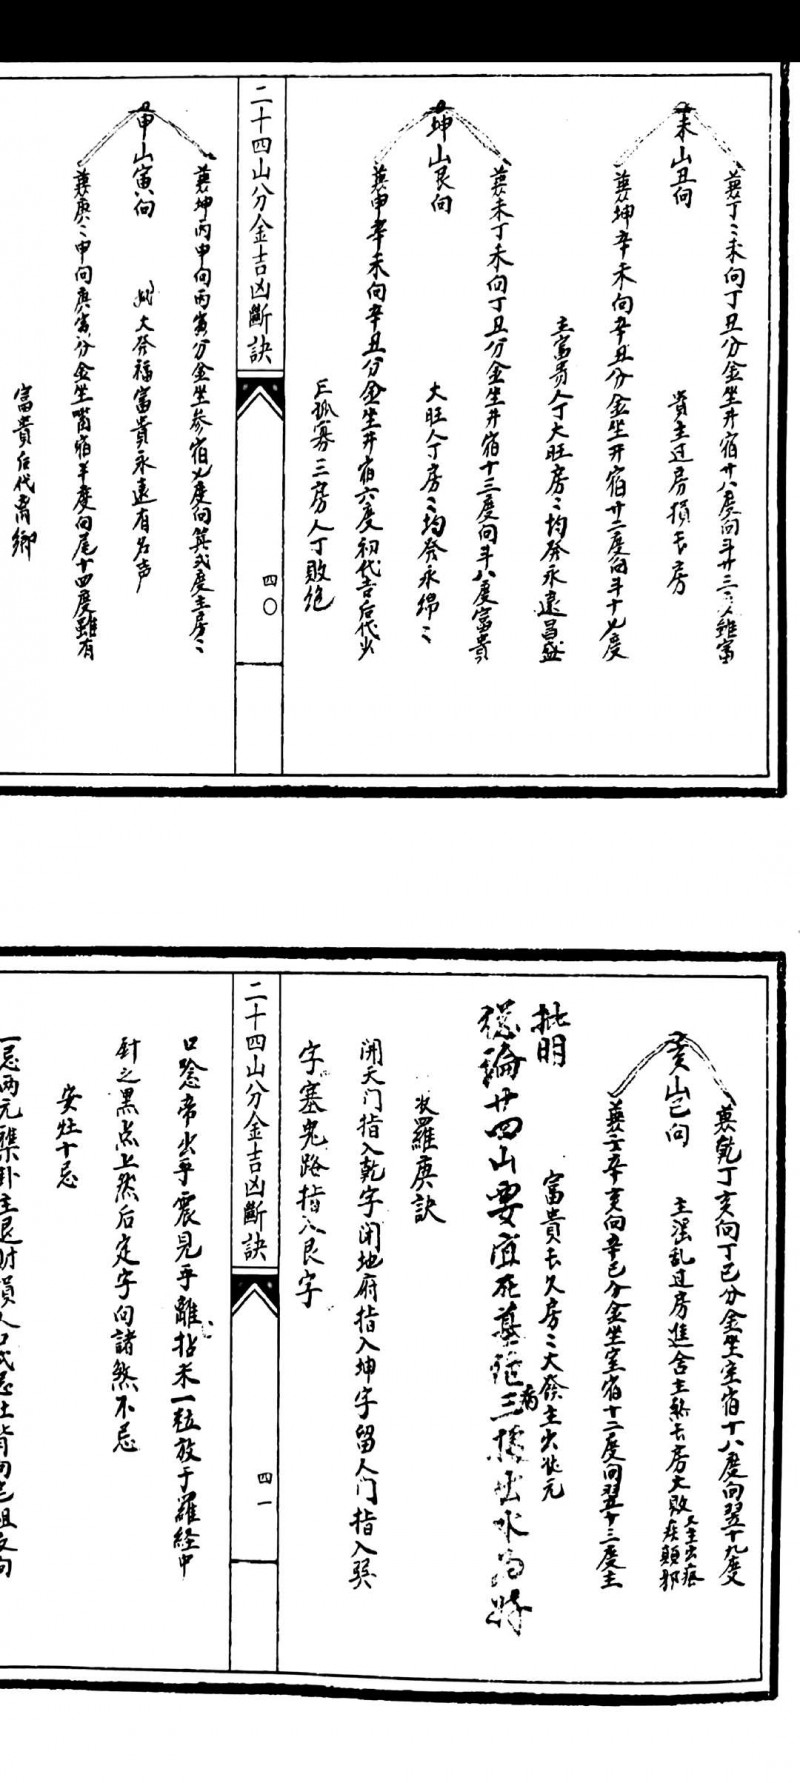 未山丑向
兼丁丁未向丁丑分金坐井宿廿八度向斗廿三 雖富
貴主过房損长房
兼坤辛未向辛丑分金坐井宿廿二度向斗十七度
主富贵人丁大旺房〻均癸永遠昌盛
坤山艮向
兼未丁未向丁丑分金坐井宿十三度向斗八度富貴
大旺人丁房〻均癸永綿〻
兼申辛未向辛丑分金坐井宿六度初代吉后代少
孤寡三房人丁敗绝
二十四山分金吉凶斷訣
四〇
申山寅向
兼坤丙申向丙寅分金坐参宿七度向箕弍度主房〻
大癸福富貴永遠有名声
兼庚〻申向庚寅分金坐嘴宿半度向尾十四度雖有
富貴后代离鄉
亥山巳向
兼乾丁亥向丁巳分金坐室宿十八度向翌十九度
主淫乱过房進舍主 长房大败 主出瘧疾顛邪
兼壬辛亥向辛巳分金坐室宿十二度向翌十三度主
富貴长久房〻大發主出状元
批明
總論廿四山要宜死墓绝病三 出水为
羅庚訣
開天门指入乾字闭地府指入坤字留人门指入巽
字塞鬼路指入艮字
二十四山分金吉凶斷訣
四一
口唸帝出乎震見乎離拈米一粒放于羅経中
針之黑点上然后定字向諸煞不忌
安灶十忌
一忌两元 卦主退财損人口弍忌灶背